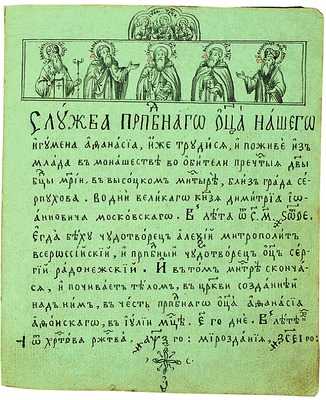 Слꙋ́жба прпⷣбнагѡ ѻц҃а на́шегѡ
и́гꙋмена аѳана́сїа, и́же трꙋди́сѧ, и҆ поживѐ из̾
мла́да въ мона́шествѣ во ѻби́тели пречⷭ҇тыѧ дв҃ы
бц҃ы мр҃і́и, въ высо́цкомъ мн҃тырѣ, бли́з̾ гра́да се́р-
пꙋхова. Во днѝ вели́кагѡ кнѧ́зѧ дими́трїа їѡ-
а́нновича моско́вскагѡ. В̾ лѣ́та
Егда̀ бѣ́хꙋ чꙋдотво́рецъ алеѯі́й митрополи́тъ
всерѡссі́йскїй, и҆ прпⷣбный чꙋдотво́рецъ ѻц҃ъ се́р-
гїй ра́донежскїй. И въ то́мъ мн҃трѣ̀ сконча́-
сѧ, и҆ почива́етъ тѣ́ломъ, въ цр҃кви созда́ннѣй
над̾ ни́мъ, въ че́сть прпⷣбнагѡ ѻц҃а аѳана́сїа
аѳо́нскагѡ, въ їꙋ́лїи мцⷭ҇ѣ. Е҃ гѡ днѐ. В̾ лѣ́тѣ
ѿ хрⷭ҇то́ва ржⷭ҇тва̀, го: мірозда́нїѧ, го: